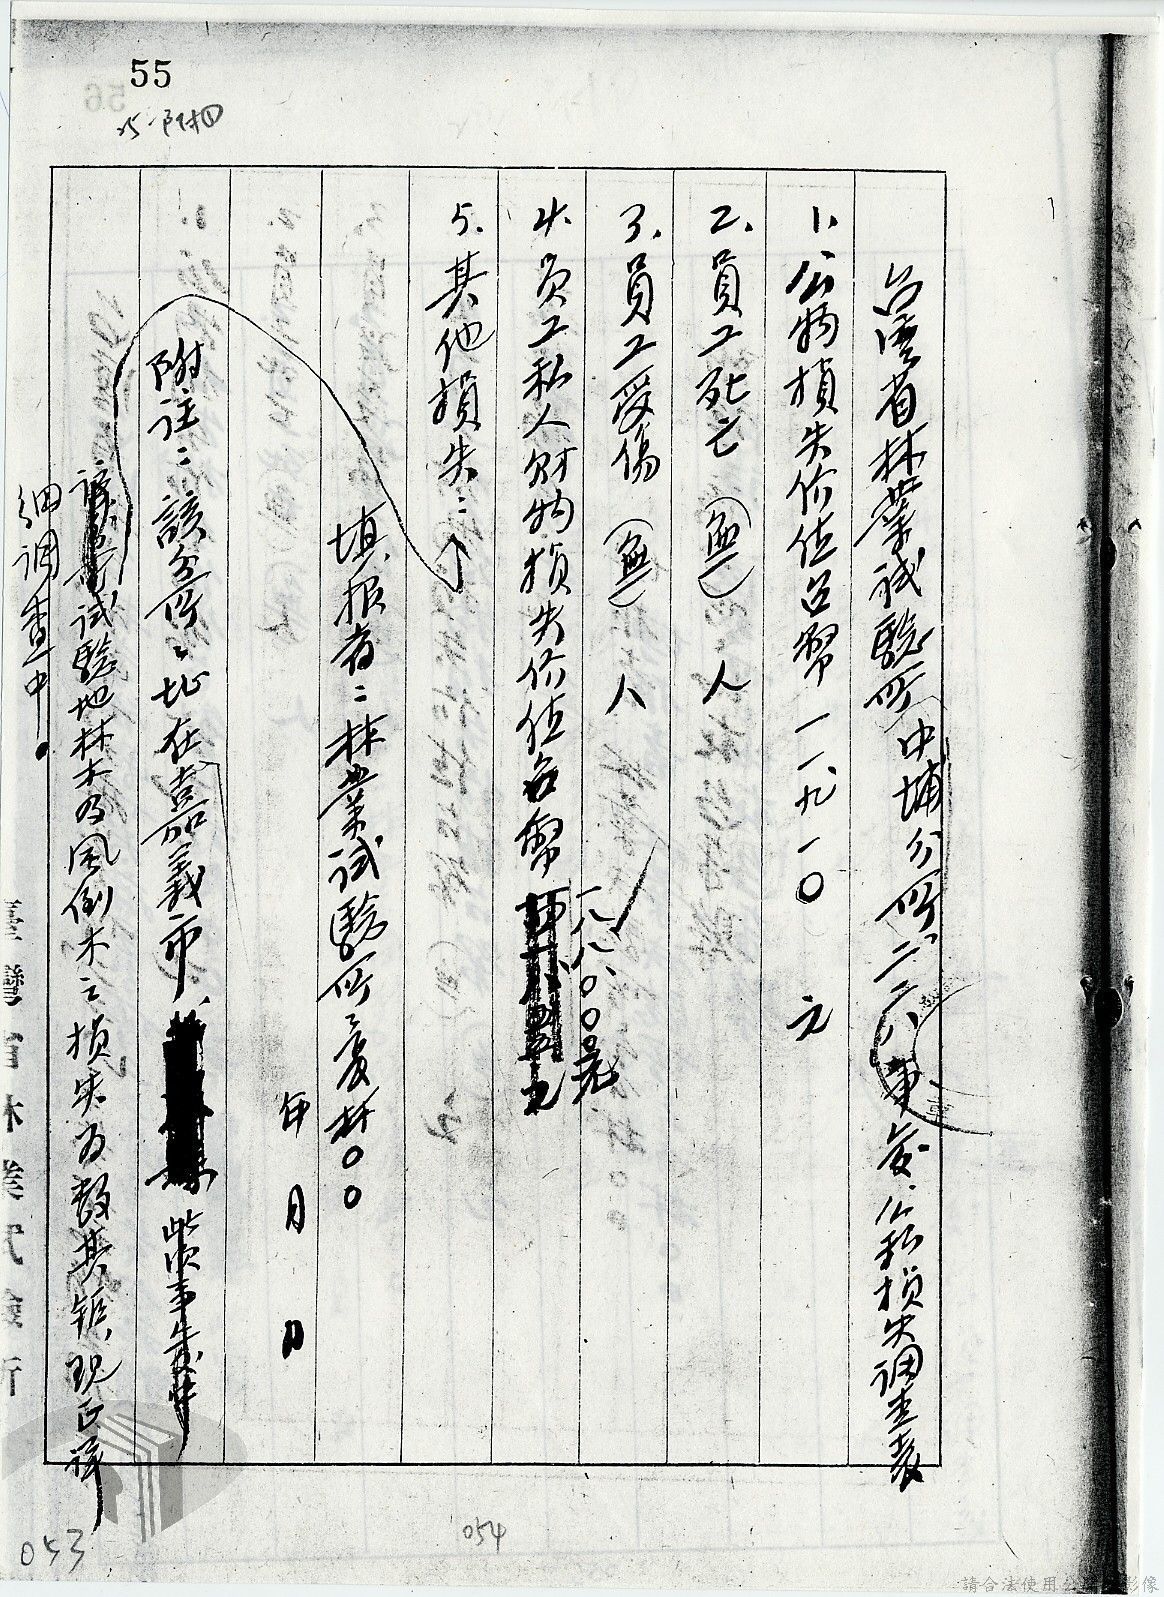 55
15-附4①
台灣省林業試驗所中埔分所二二八事变公私損失調查表
1. 公物損失价值台幣 一一九一〇 元
2. 員工死亡 (無) 人
3. 員工受傷 (無) 人
4. 員工私人財物損失价值台幣
一八八、〇〇〇元
5. 其他損失：
填报者：林業試驗所之長林〇〇
年 月 日
附註：該分所之址在嘉義市、 柴事变時
試驗地林木及風倒木之損失为数甚鉅，現正詳
細调查中。
臺灣省林業試驗所
053
054